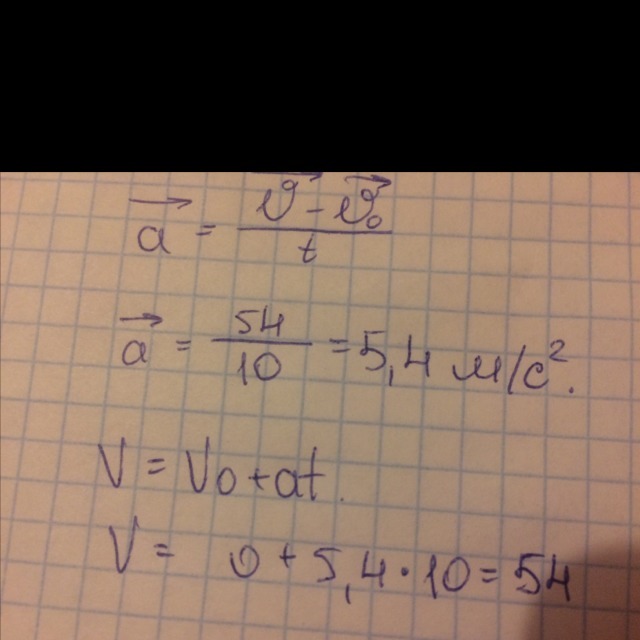 a⃗ = (v⃗ - v⃗₀) / t
a⃗ = 54/10 = 5,4 м/с².
V = V₀ + at.
V = 0 + 5,4 · 10 = 54